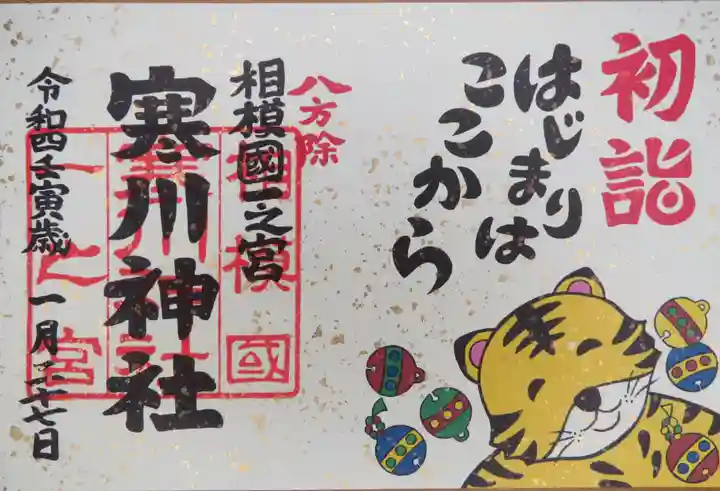 初詣
はじまりは
ここから
八方除
相模國一之宮
寒川神社
令和四壬寅歳 一月二十七日
相模國
一之宮